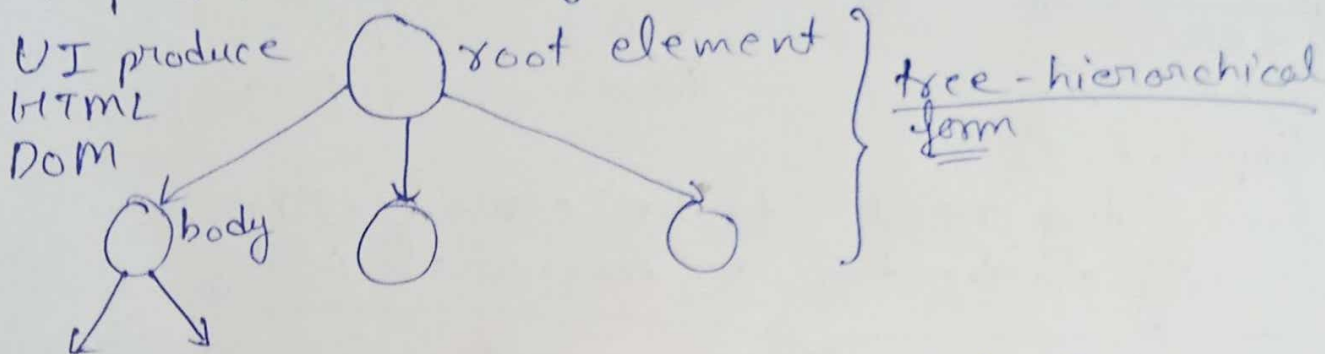 UI produce
HTML
DOM
root element
tree-hierarchical
form
body